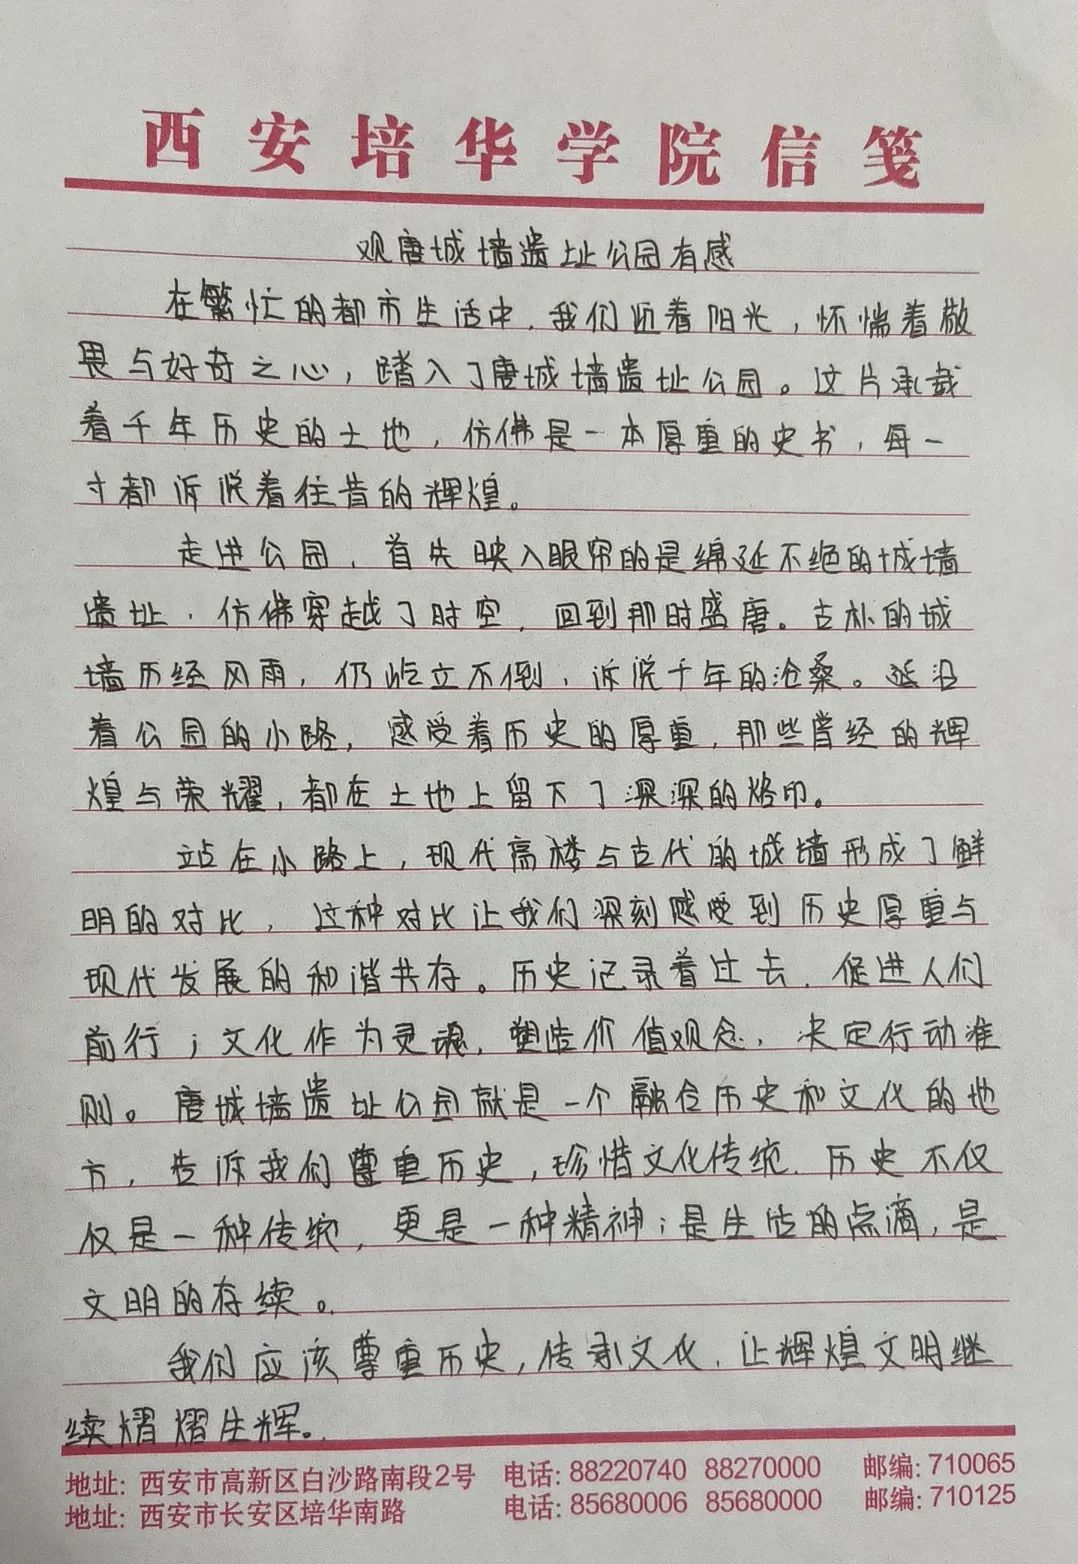 西安培华学院信笺
观唐城墙遗址公园有感
在繁忙的都市生活中，我们迎着阳光，怀惴着敬
畏与好奇之心，踏入了唐城墙遗址公园。这片承载
着千年历史的土地，仿佛是一本厚重的史书，每一
寸都诉说着往昔的辉煌。
走进公园，首先映入眼帘的是绵延不绝的城墙
遗址，仿佛穿越了时空，回到那时盛唐。古朴的城
墙历经风雨，仍屹立不倒，诉说千年的沧桑。沿
着公园的小路，感受着历史的厚重，那些曾经的辉
煌与荣耀，都在土地上留下了深深的烙印。
站在小路上，现代高楼与古代的城墙形成了鲜
明的对比，这种对比让我们深刻感受到历史厚重与
现代发展的和谐共存。历史记录着过去，促进人们
前行；文化作为灵魂，塑造价值观念，决定行动准
则。唐城墙遗址公园就是一个融合历史和文化的地
方，告诉我们尊重历史，珍惜文化传统，历史不仅
仅是一种传统，更是一种精神；是生活的点滴，是
文明的存续。
我们应该尊重历史，传承文化，让辉煌文明继
续熠熠生辉。
地址: 西安市高新区白沙路南段2号 电话: 88220740 88270000 邮编: 710065
地址: 西安市长安区培华南路 电话: 85680006 85680000 邮编: 710125